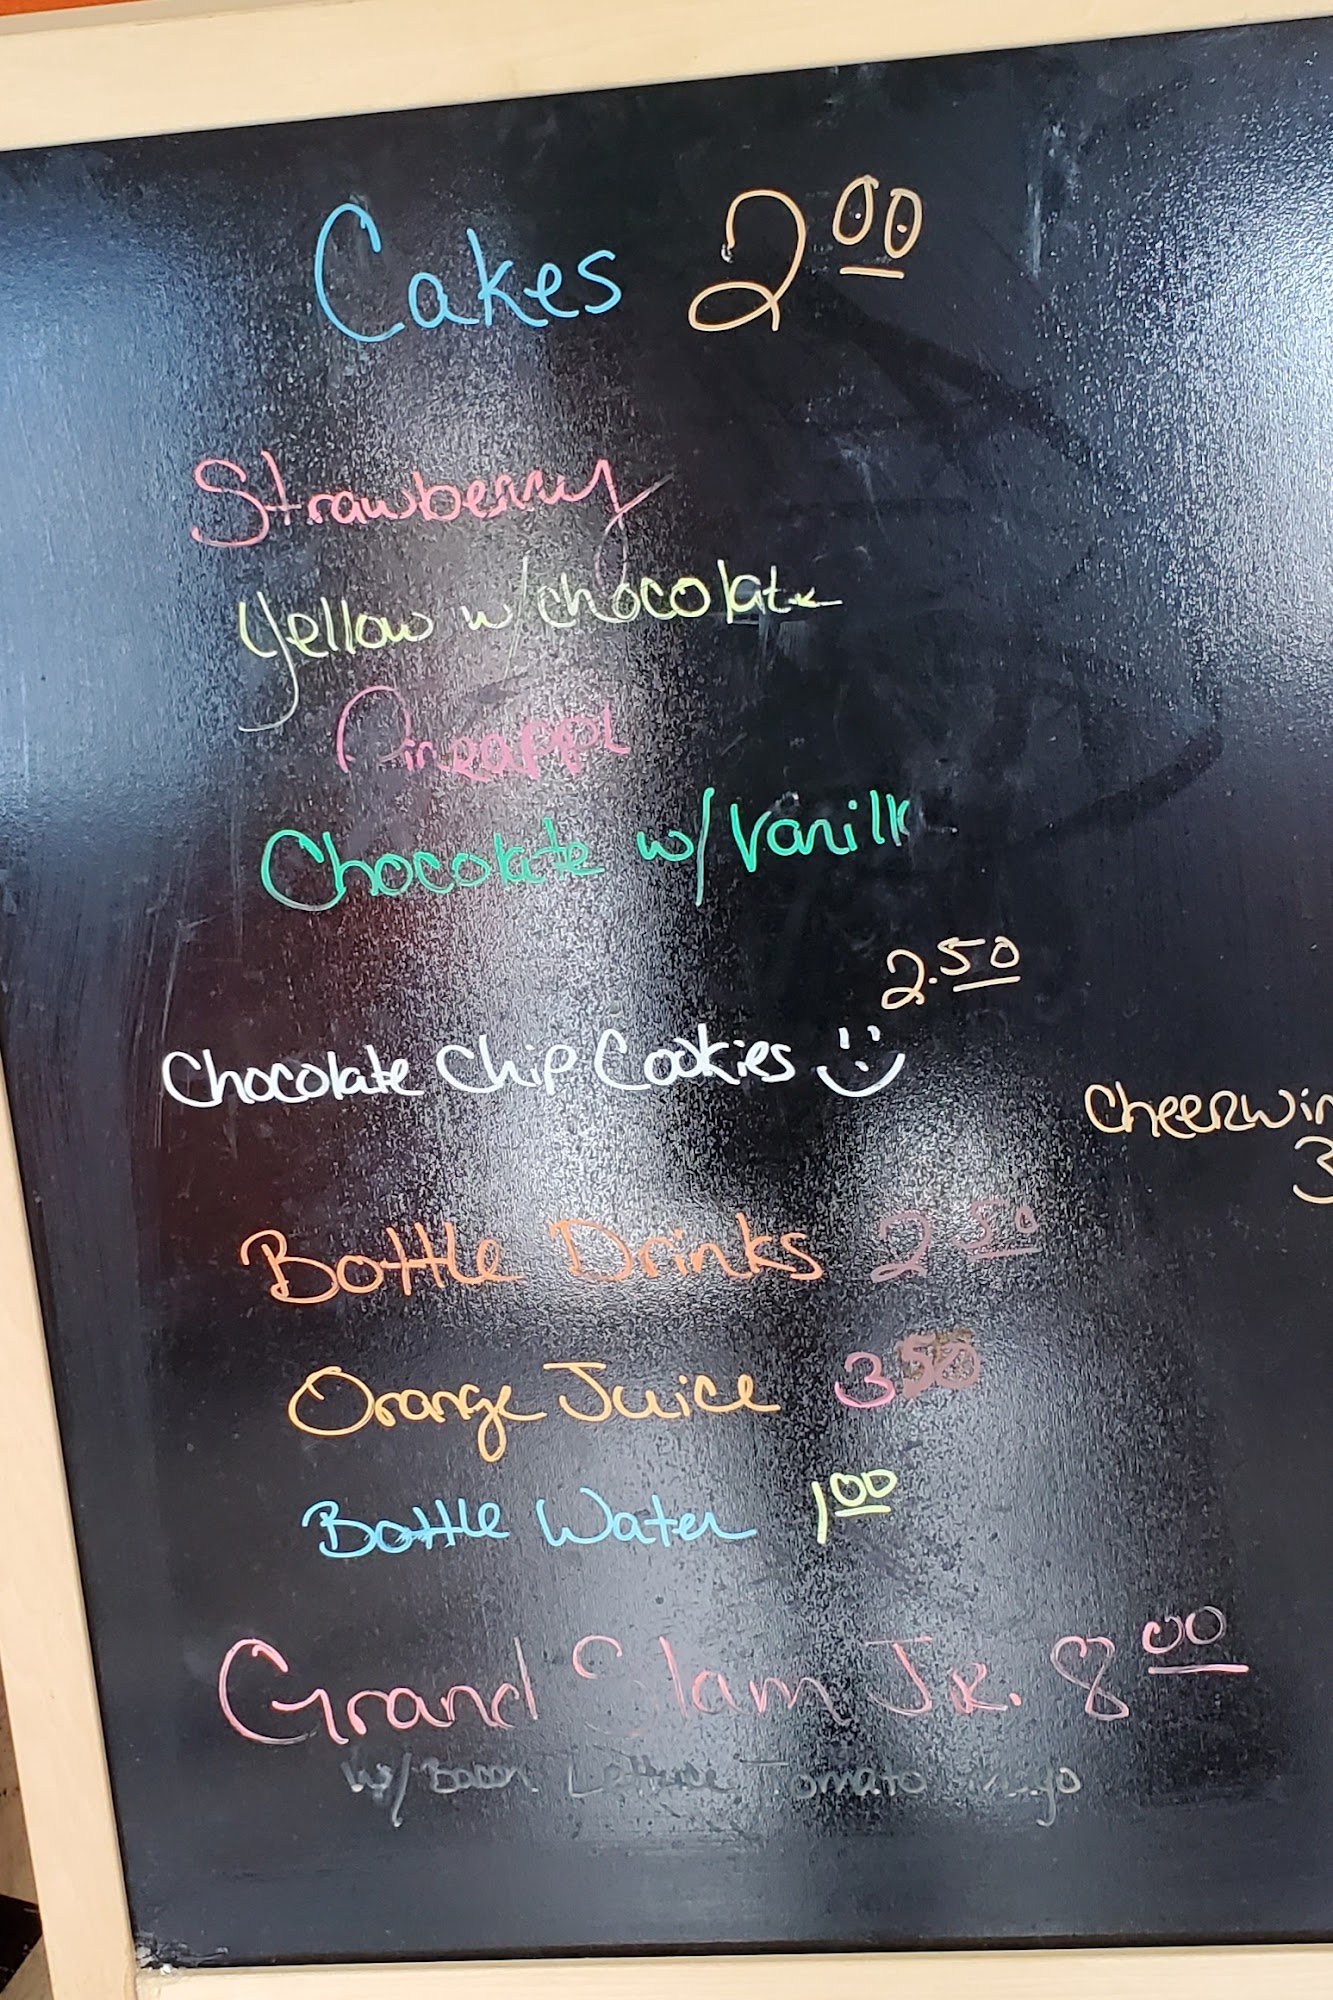 Cakes 2.00
Strawberry
Yellow w/chocolate
Pineappl
Chocolate w/Vanill
2.50
Chocolate Chip Cookies
Cheerwin
3
Bottle Drinks 2.50
Orange Juice 3.50
Bottle Water 1.00
Grand Slam Jr. 8.00
w/ Bacon Lettuce Tomato